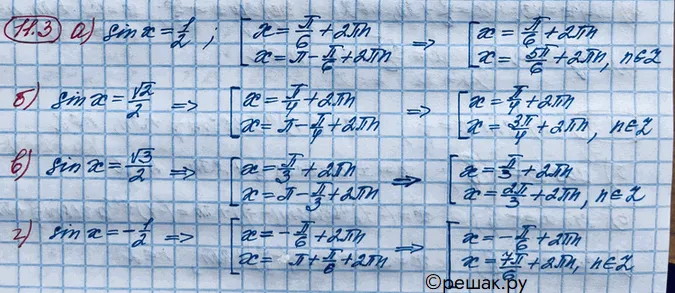 11.3 а) sin x = 1/2 ; [ x = π/6 + 2πn => [ x = π/6 + 2πn
x = π - π/6 + 2πn x = 5π/6 + 2πn, n∈Z
б) sin x = √2/2 => [ x = π/4 + 2πn => [ x = π/4 + 2πn
x = π - π/4 + 2πn x = 3π/4 + 2πn, n∈Z
в) sin x = √3/2 => [ x = π/3 + 2πn => [ x = π/3 + 2πn
x = π - π/3 + 2πn x = 2π/3 + 2πn, n∈Z
г) sin x = -1/2 => [ x = -π/6 + 2πn => [ x = -π/6 + 2πn
x = π + π/6 + 2πn x = 7π/6 + 2πn, n∈Z
©решак.ру